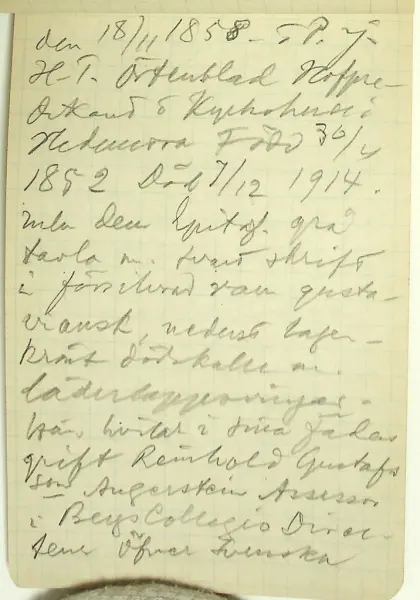 den 18/11 1858 - T. P. J-
H-T. Örtenblad Hofpre-
dikant o Kyrkoherde i
Hedemora Född 30/4
1852 Död 7/12 1914.
den Epitaf. grå
tavla m. svart skrift
i försilvrad ram gusta-
viansk, nederst lager-
krönt dödskalle m.
läderlappsvingar.
Här hvilar i sina fäders
grift Reinhold Gustafs
son Angerstein Assessor
i Bergs Collegio Direc-
teur Öfver Svenska